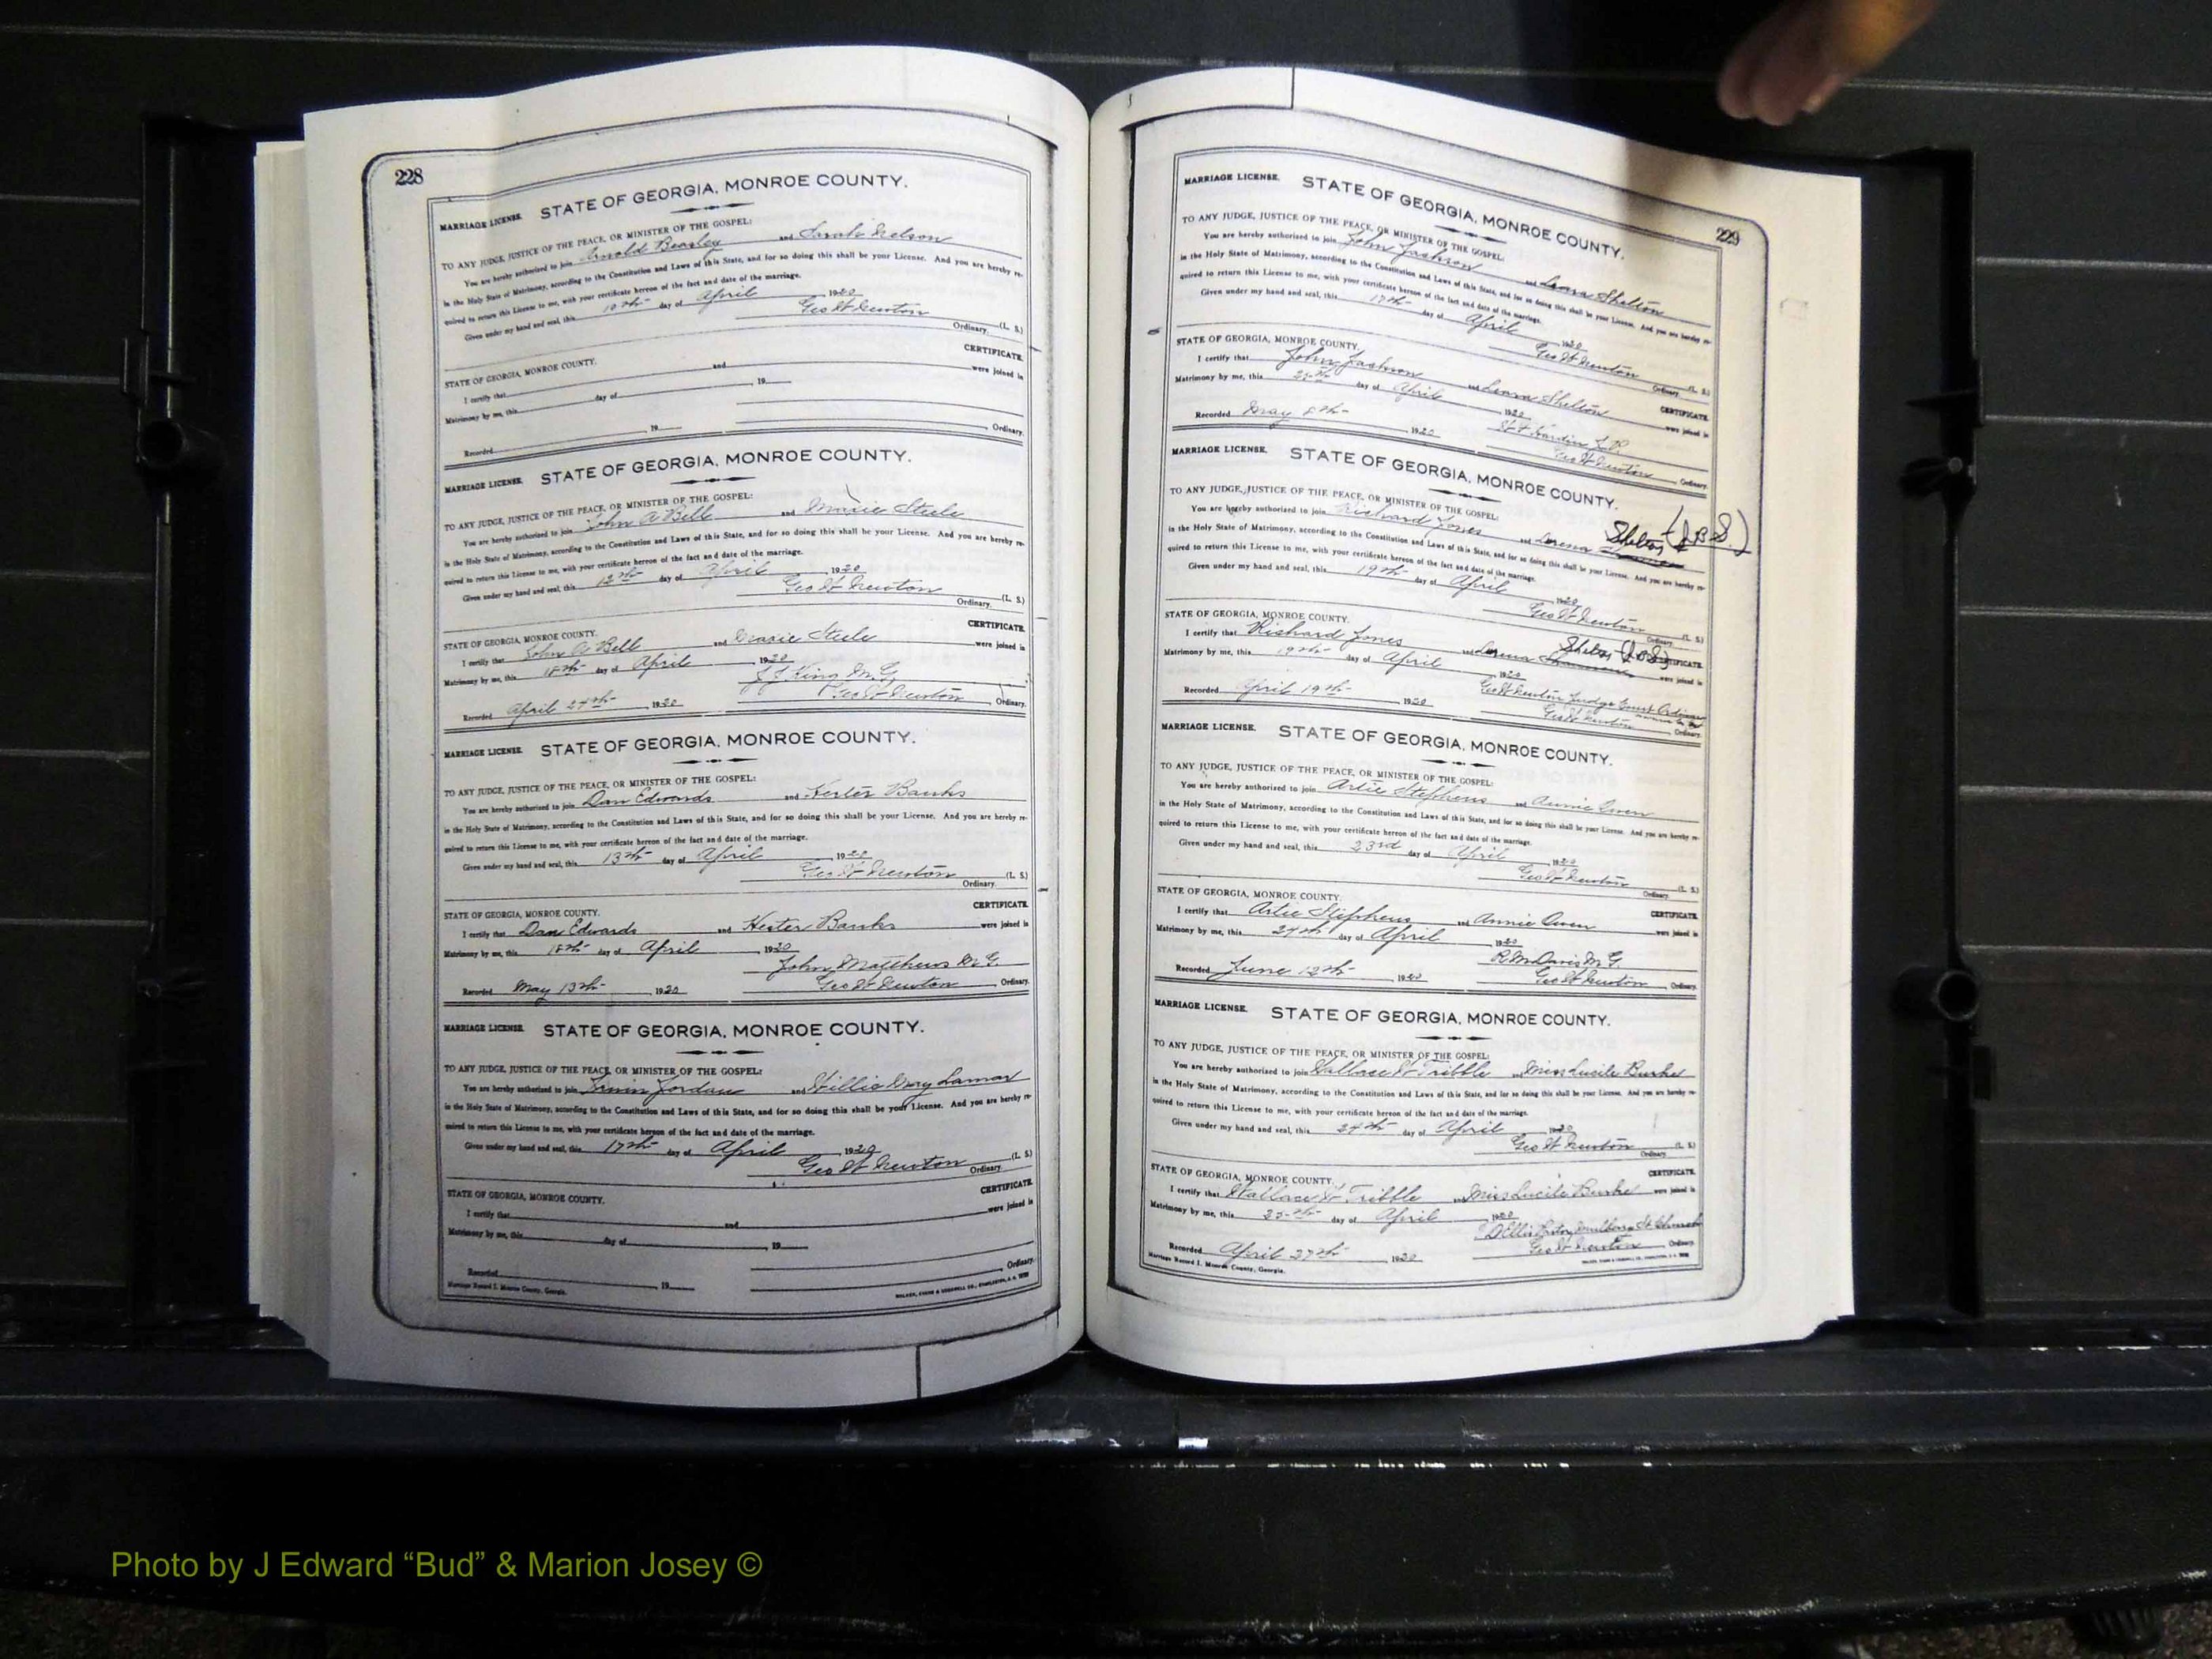 228
MARRIAGE LICENSE. STATE OF GEORGIA, MONROE COUNTY.
TO ANY JUDGE, JUSTICE OF THE PEACE, OR MINISTER OF THE GOSPEL:
You are hereby authorized to join Arnold Beasley and Sarah Nelson
in the Holy State of Matrimony, according to the Constitution and Laws of this State, and for so doing this shall be your License. And you are hereby re-
quired to return this License to me, with your certificate hereon of the fact and date of the marriage.
Given under my hand and seal, this 10th day of April 1920
Geo W Newton (L. S.)
Ordinary.
STATE OF GEORGIA, MONROE COUNTY. CERTIFICATE.
I certify that and were joined in
Matrimony by me, this day of , 19
Recorded 19 Ordinary.
MARRIAGE LICENSE. STATE OF GEORGIA, MONROE COUNTY.
TO ANY JUDGE, JUSTICE OF THE PEACE, OR MINISTER OF THE GOSPEL:
You are hereby authorized to join John A Bell and Maxie Steele
in the Holy State of Matrimony, according to the Constitution and Laws of this State, and for so doing this shall be your License. And you are hereby re-
quired to return this License to me, with your certificate hereon of the fact and date of the marriage.
Given under my hand and seal, this 12th day of April , 1920
Geo W Newton (L. S.)
Ordinary.
STATE OF GEORGIA, MONROE COUNTY. CERTIFICATE.
I certify that John A Bell and Maxie Steele were joined in
Matrimony by me, this 18th day of April , 1920
J J King M.G.
Recorded April 24th , 1920 Geo W Newton , Ordinary.
MARRIAGE LICENSE. STATE OF GEORGIA, MONROE COUNTY.
TO ANY JUDGE, JUSTICE OF THE PEACE, OR MINISTER OF THE GOSPEL:
You are hereby authorized to join Dan Edwards and Hester Banks
in the Holy State of Matrimony, according to the Constitution and Laws of this State, and for so doing this shall be your License. And you are hereby re-
quired to return this License to me, with your certificate hereon of the fact and date of the marriage.
Given under my hand and seal, this 13th day of April , 1920
Geo W Newton (L. S.)
Ordinary.
STATE OF GEORGIA, MONROE COUNTY. CERTIFICATE.
I certify that Dan Edwards and Hester Banks were joined in
Matrimony by me, this 18th day of April , 1920
John Matthews M.G.
Recorded May 13th , 1920 Geo W Newton , Ordinary.
MARRIAGE LICENSE. STATE OF GEORGIA, MONROE COUNTY.
TO ANY JUDGE, JUSTICE OF THE PEACE, OR MINISTER OF THE GOSPEL:
You are hereby authorized to join Jordan and Willie Mary Lamar
in the Holy State of Matrimony, according to the Constitution and Laws of this State, and for so doing this shall be your License. And you are hereby re-
quired to return this License to me, with your certificate hereon of the fact and date of the marriage.
Given under my hand and seal, this 17th day of April , 1920
Geo W Newton (L. S.)
Ordinary.
STATE OF GEORGIA, MONROE COUNTY. CERTIFICATE.
I certify that and were joined in
Matrimony by me, this day of , 19
Recorded , 19 Ordinary.
Marriage Record I. Monroe County, Georgia.
229
MARRIAGE LICENSE. STATE OF GEORGIA, MONROE COUNTY.
TO ANY JUDGE, JUSTICE OF THE PEACE, OR MINISTER OF THE GOSPEL:
You are hereby authorized to join John Jackson and Leona Shelton
in the Holy State of Matrimony, according to the Constitution and Laws of this State, and for so doing this shall be your License. And you are hereby re-
quired to return this License to me, with your certificate hereon of the fact and date of the marriage.
Given under my hand and seal, this 17th day of April 1920
Geo W Newton (L. S.)
Ordinary.
STATE OF GEORGIA, MONROE COUNTY. CERTIFICATE.
I certify that John Jackson and Leona Shelton were joined in
Matrimony by me, this 25th day of April , 1920
Recorded May 8th , 1920 Geo W Newton , Ordinary.
MARRIAGE LICENSE. STATE OF GEORGIA, MONROE COUNTY.
TO ANY JUDGE, JUSTICE OF THE PEACE, OR MINISTER OF THE GOSPEL:
You are hereby authorized to join Richard Jones and Lorena Shelton
in the Holy State of Matrimony, according to the Constitution and Laws of this State, and for so doing this shall be your License. And you are hereby re-
quired to return this License to me, with your certificate hereon of the fact and date of the marriage.
Given under my hand and seal, this 19th day of April , 1920
Geo W Newton (L. S.)
Ordinary.
STATE OF GEORGIA, MONROE COUNTY. CERTIFICATE.
I certify that Richard Jones and Lorena Shelton were joined in
Matrimony by me, this 19th day of April , 1920
Geo W Newton Judge Court Ordinary
Recorded April 19th , 1920 Geo W Newton , Ordinary.
MARRIAGE LICENSE. STATE OF GEORGIA, MONROE COUNTY.
TO ANY JUDGE, JUSTICE OF THE PEACE, OR MINISTER OF THE GOSPEL:
You are hereby authorized to join Artie Stephens and Annie Owen
in the Holy State of Matrimony, according to the Constitution and Laws of this State, and for so doing this shall be your License. And you are hereby re-
quired to return this License to me, with your certificate hereon of the fact and date of the marriage.
Given under my hand and seal, this 23rd day of April , 1920
Geo W Newton (L. S.)
Ordinary.
STATE OF GEORGIA, MONROE COUNTY. CERTIFICATE.
I certify that Artie Stephens and Annie Owen were joined in
Matrimony by me, this 24th day of April , 1920
R M Davis M.G.
Recorded June 12th , 1920 Geo W Newton , Ordinary.
MARRIAGE LICENSE. STATE OF GEORGIA, MONROE COUNTY.
TO ANY JUDGE, JUSTICE OF THE PEACE, OR MINISTER OF THE GOSPEL:
You are hereby authorized to join Wallace W Tribble and Miss Lucile Burke
in the Holy State of Matrimony, according to the Constitution and Laws of this State, and for so doing this shall be your License. And you are hereby re-
quired to return this License to me, with your certificate hereon of the fact and date of the marriage.
Given under my hand and seal, this 24th day of April , 1920
Geo W Newton (L. S.)
Ordinary.
STATE OF GEORGIA, MONROE COUNTY. CERTIFICATE.
I certify that Wallace W Tribble and Miss Lucile Burke were joined in
Matrimony by me, this 25th day of April , 1920
Ellis Pastor Mulberry St Church
Recorded April 27th , 1920 Geo W Newton , Ordinary.
Marriage Record I. Monroe County, Georgia.
Photo by J Edward “Bud” & Marion Josey ©